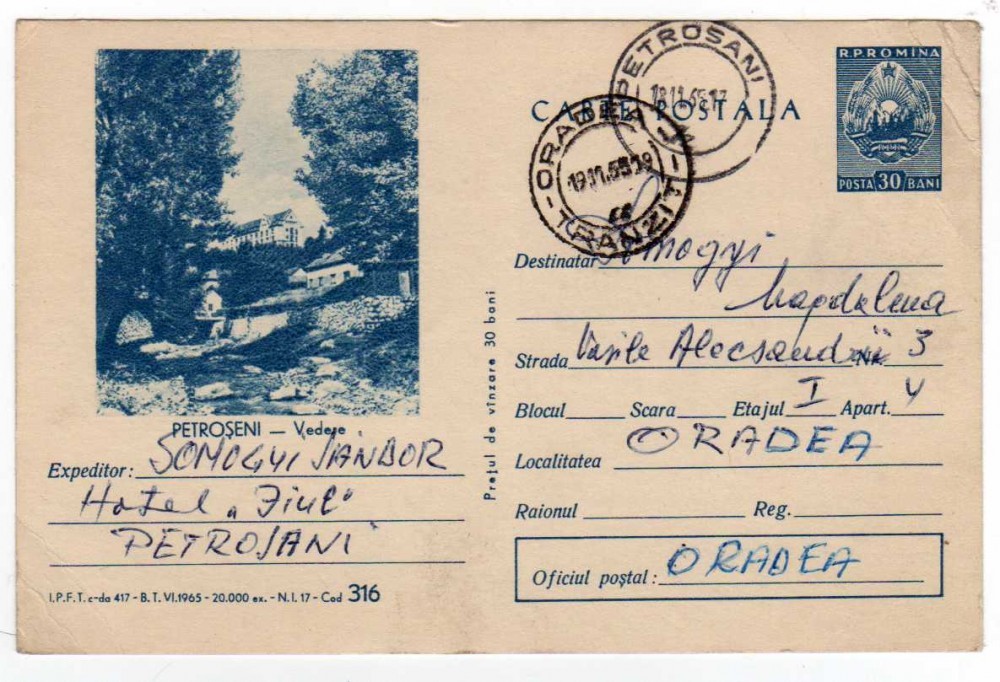 CARTE POSTALA
PETROSANI
18.11.65-17
ORADEA
19.11.65 19
TRANZIT
R.P.ROMINA
POSTA 30 BANI
PETROȘENI — Vedere
Expeditor: SOMOGYI SANDOR
Hotel „Jiul"
PETROSANI
I.P.F.T. c-da 417 - B.T. VI.1965 - 20.000 ex. - N.I. 17 - Cod 316
Prețul de vînzare 30 bani
Destinatar Somogyi
Magdalena
Strada Vasile Alecsandrii Nr. 3
Blocul Scara Etajul I Apart. 4
Localitatea ORADEA
Raionul Reg.
Oficiul poștal: ORADEA